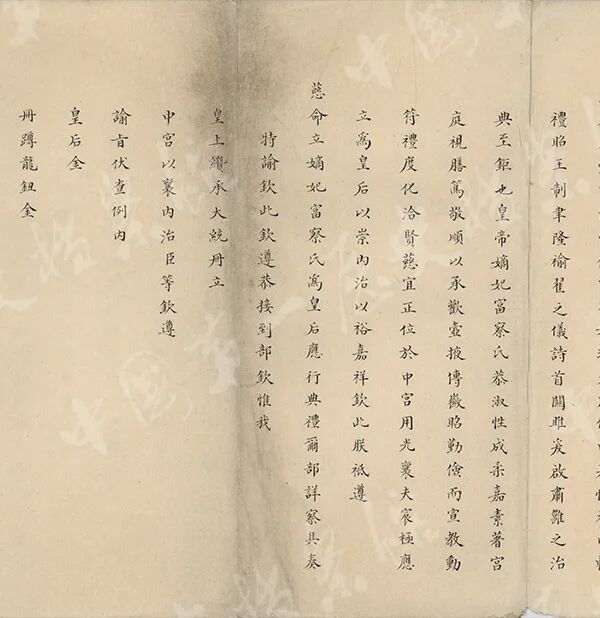 禮昭王制聿隆褕翟之儀詩首關雎爰啟肅雝之治
典至鉅也皇帝嫡妃富察氏恭淑性成柔嘉素著宮
庭視膳篤敬順以承歡壼掖傳徽昭勤儉而宣教動
符禮度化洽賢慈宜正位於中宮用光襄夫宸極應
立為皇后以崇內治以裕嘉祥欽此朕祗遵
慈命立嫡妃富察氏為皇后應行典禮爾部詳察具奏
特諭欽此欽遵恭接到部欽惟我
皇上纘承大統冊立
中宮以襄內治臣等欽遵
諭旨伏查例內
皇后金
冊蹲龍鈕金